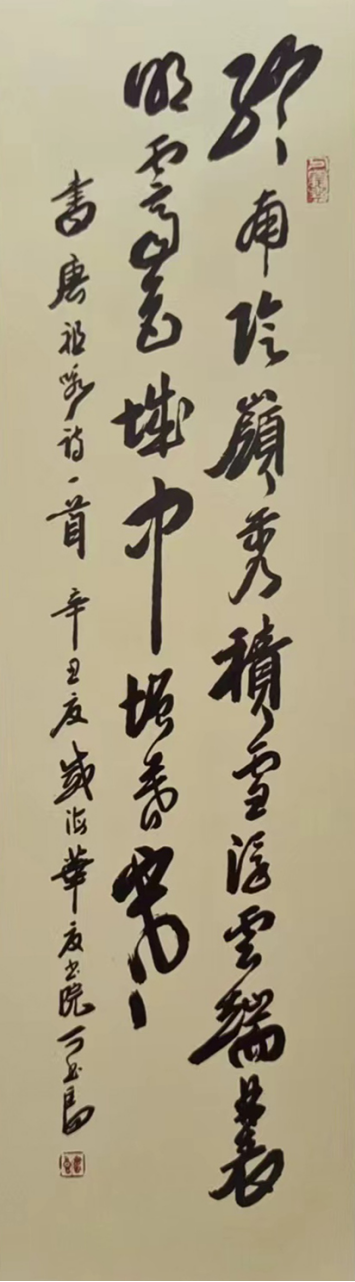 終南陰嶺秀積雪浮雲端林表
明霽色城中增暮寒
書唐祖詠詩一首 辛丑夏 威海華夏書院